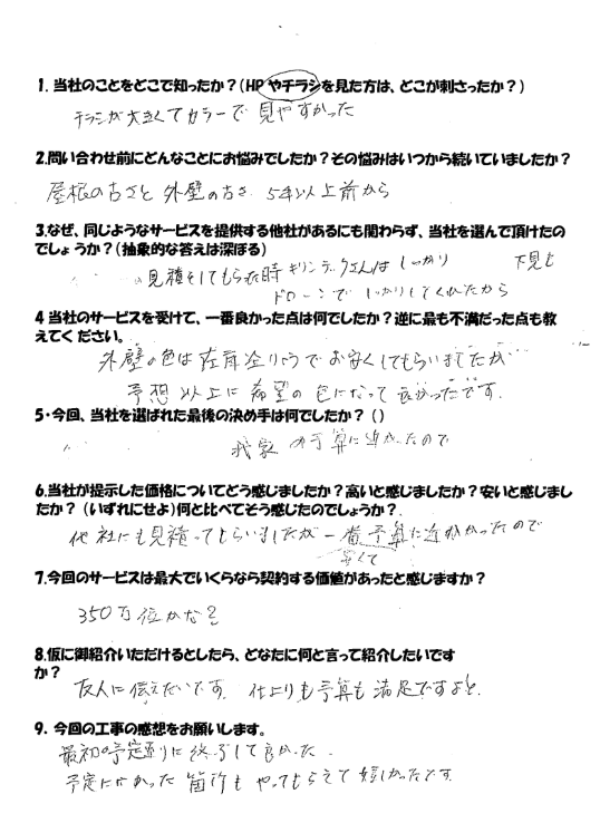 1. 当社のことをどこで知ったか？(HPやチラシを見た方は、どこが刺さったか？)
チラシが大きくてカラーで見やすかった
2.問い合わせ前にどんなことにお悩みでしたか？その悩みはいつから続いていましたか？
屋根の古さと外壁の古さ 5年以上前から
3.なぜ、同じようなサービスを提供する他社があるにも関わらず、当社を選んで頂けたの
でしょうか？(抽象的な答えは深ぼる)
見積をしてもらった時キリンテックさんは しっかり 下見も
ドローンで しっかりしてくれたから
4 当社のサービスを受けて、一番良かった点は何でしたか？逆に最も不満だった点も教
えてください。
外壁の色は在庫塗りょうでお安くしてもらいましたが
予想以上に希望の色になって良かったです.
5・今回、当社を選ばれた最後の決め手は何でしたか？()
我家の予算に近かったので
6.当社が提示した価格についてどう感じましたか？高いと感じましたか？安いと感じまし
たか？ (いずれにせよ)何と比べてそう感じたのでしょうか？
他社にも見積ってもらいましたが一番予算に近かったので
安くて
7.今回のサービスは最大でいくらなら契約する価値があったと感じますか？
350万位かな？
8.仮に御紹介いただけるとしたら、どなたに何と言って紹介したいです
か？
友人に伝えたいです. 仕上りも予算も満足ですよと.
9. 今回の工事の感想をお願いします。
最初の予定通りに終了して良かった.
予定になかった箇所もやってもらえて嬉しかったです.